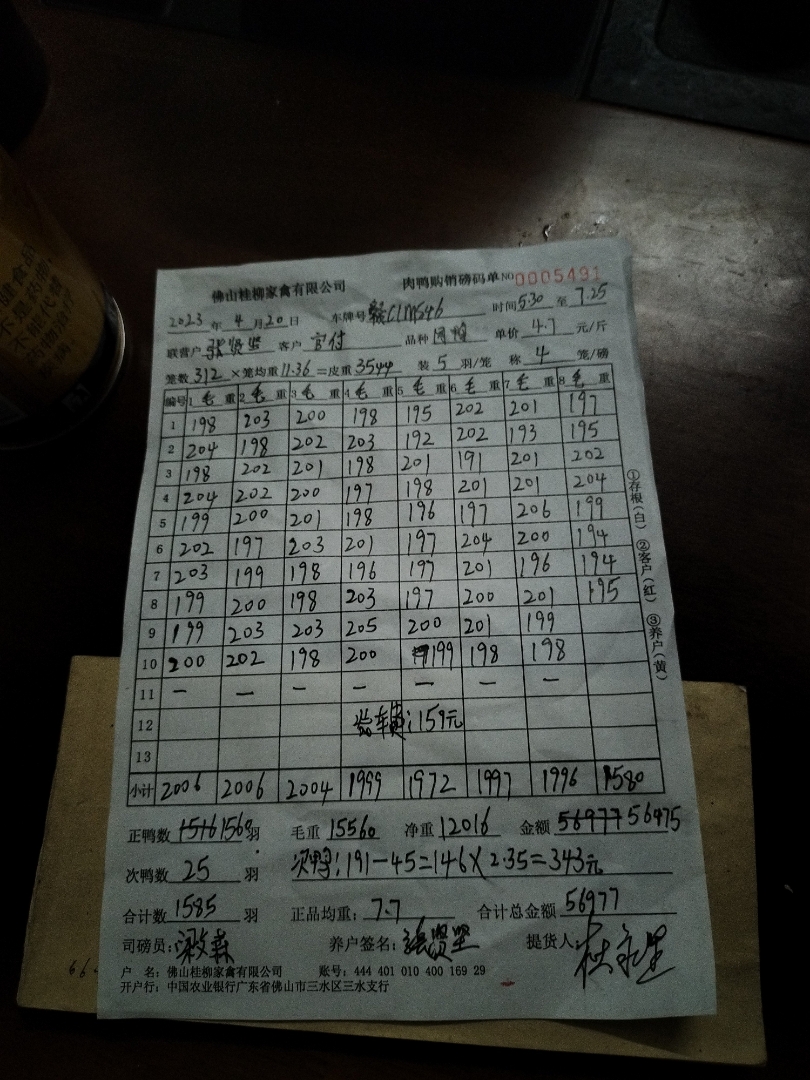 佛山桂柳家禽有限公司 肉鸭购销磅码单 NO 0005491
2023年4月20日 车牌号 时间5:30至7.25
联营户 张贤坚 客户 官付 品种 单价 4.7 元/斤
笼数 312 ×笼均重 11.36 =皮重 3544 装 5 羽/笼 称 4 笼/磅
编号 1 毛 重 2 毛 重 3 毛 重 4 毛 重 5 毛 重 6 毛 重 7 毛 重 8 毛 重
1 198 203 200 198 195 202 201 197
2 204 198 202 203 192 202 193 195
3 198 202 201 198 201 191 201 202
4 204 202 200 197 198 201 201 204
5 199 200 201 198 196 197 206 199
6 202 197 203 201 197 204 200 194
7 203 199 198 196 197 201 196 194
8 199 200 198 203 197 200 201 195
9 199 203 203 205 200 201 199
10 200 202 198 200 199 198 198
11 — — — — — — —
12 车费:159元
13
小计 2006 2006 2004 1999 1972 1997 1996 1580
①存根(白) ②客户(红) ③养户(黄)
正鸭数 1516 1560 羽 毛重 15560 净重 12016 金额 56977 56475
次鸭数 25 羽 次鸭:191-45=146×2.35=343元
合计数 1585 羽 正品均重: 7.7 合计总金额 56977
司磅员: 养户签名: 张贤坚 提货人
户 名: 佛山桂柳家禽有限公司 账号: 444 401 010 400 169 29
开户行: 中国农业银行广东省佛山市三水区三水支行